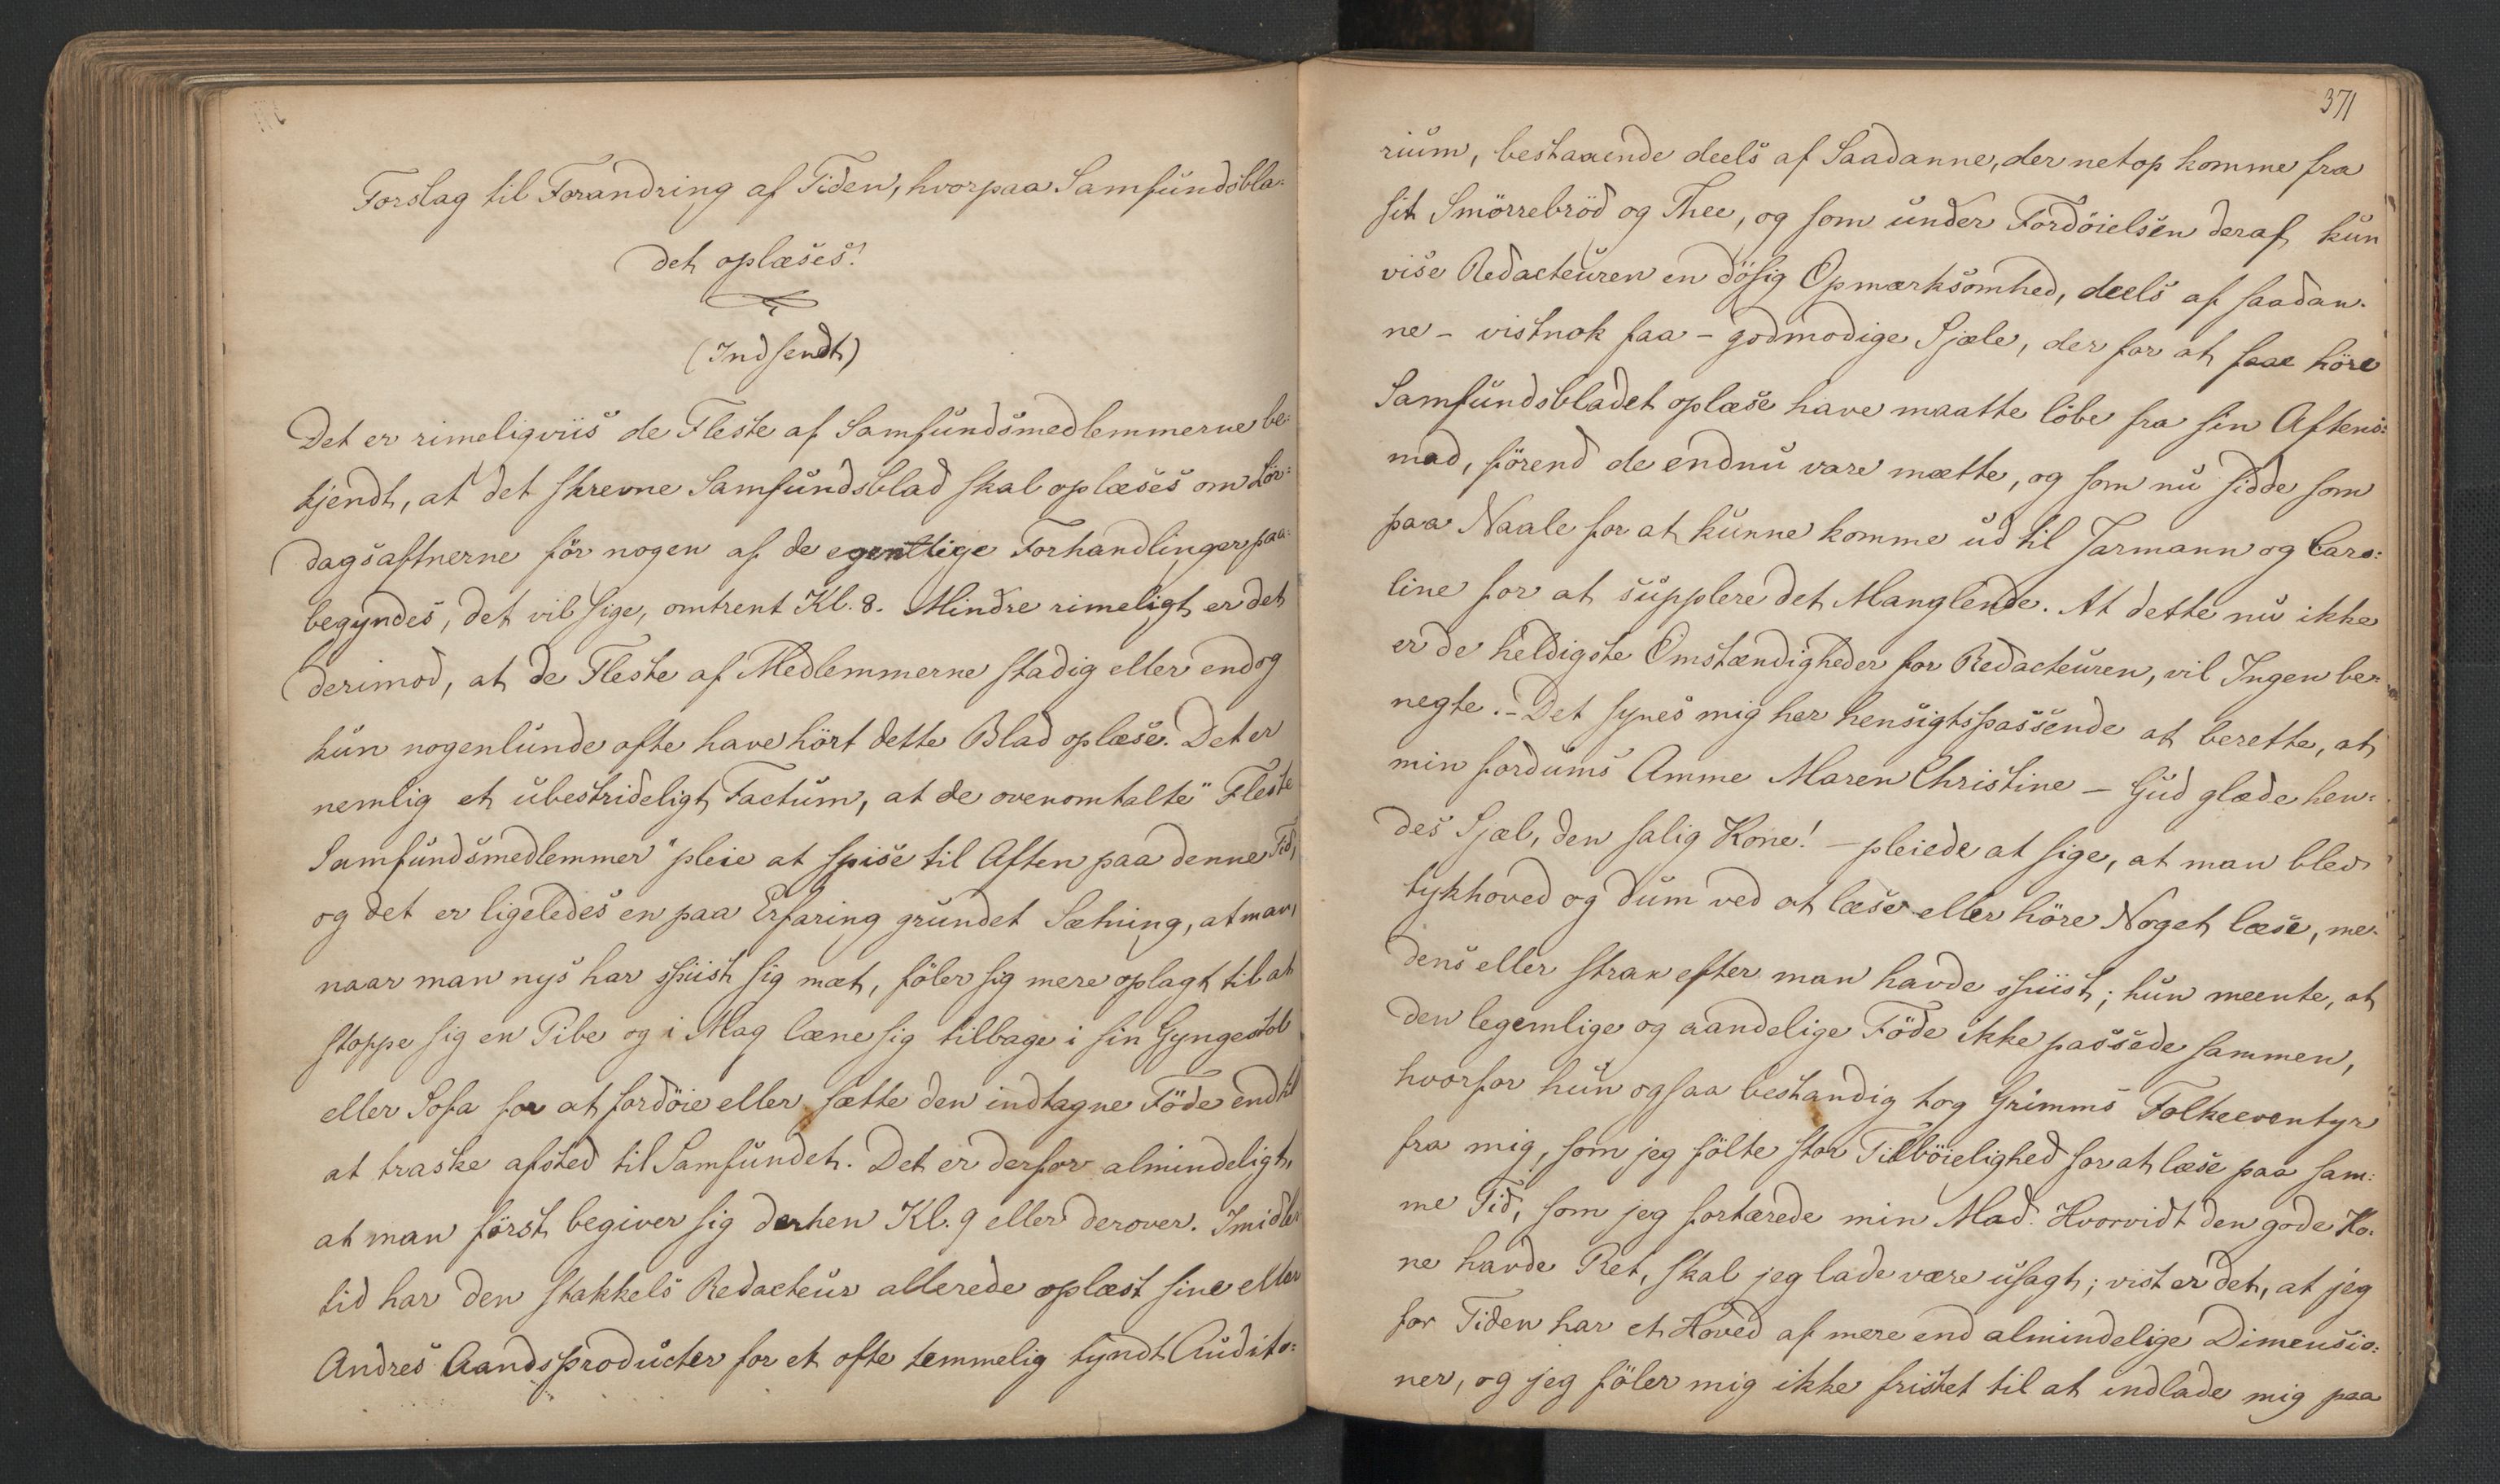 Forslag til Forandring af Tiden, hvorpaa Samfundsbla-
det oplæses!
(Indsendt)
Det er rimeligviis de Fleste af Samfundsmedlemmerne be-
kjendt, at det skrevne Samfundsblad skal oplæses om Lör-
dagsaftnerne för nogen af de egentlige Forhandlinger paa-
begyndes, det vil sige, omtrent Kl. 8. Mindre rimeligt er det
derimod, at de Fleste af Medlemmerne stadig eller endog
kun nogenlunde ofte have hört dette Blad oplæse. Det er
nemlig et ubestrideligt Factum, at de ovenomtalte "Fleste
Samfundsmedlemmer" pleie at spise til Aften paa denne Tid,
og det er ligeledes en paa Erfaring grundet Sætning, at man,
naar man nys har spiist sig mæt, föler sig mere oplagt til at
stoppe sig en Pibe og i Mag læne sig tilbage i sin Gyngestol
eller Sofa for at fordöie eller sætte den indtagne Föde end til
at traske afsted til Samfundet. Det er derfor almindeligt,
at man först begiver sig derhen Kl. 9 eller derover. Imidler-
tid har den stakkels Redacteur allerede oplæst sine eller
Andres Aandsproducter for et ofte temmelig tyndt Audito-
371
rium, bestaaende deels af Saadanne, der netop komme fra
sit Smörrebröd og Thee, og som under Fordöielsen deraf kun
vise Redacteuren en dösig Opmærksomhed, deels af saadan-
ne - vistnok faa - godmodige Sjæle, der for at faae höre
Samfundsbladet oplæse have maatte löbe fra sin Aftens-
mad, förend de endnu vare mætte, og som nu sidde som
paa Naale for at kunne komme ud til Jarmann og Caro-
line for at supplere det Manglende. At dette nu ikke
er de heldigste Omstændigheder for Redacteuren, vil Ingen be-
negte. - Det synes mig her hensigtspassende at berette, at
min fordums Amme Maren Christine - Gud glæde hen-
des Sjæl, den salig Kone! - pleiede at sige, at man blev
tykhoved og dum ved at læse eller höre Noget læse, me-
dens eller strax efter man havde spiist; hun meente, at
den legemlige og aandelige Föde ikke passede sammen,
hvorfor hun ogsaa bestandig tog Grimms Folkeeventyr
fra mig, som jeg fölte stor Tilböielighed for at læse paa sam-
me Tid, som jeg fortærede min Mad. Hvorvidt den gode Ko-
ne havde Ret, skal jeg lade være usagt; vist er det, at jeg
for Tiden har et Hoved af mere end almindelige Dimensio-
ner, og jeg föler mig ikke fristet til at indlade mig paa